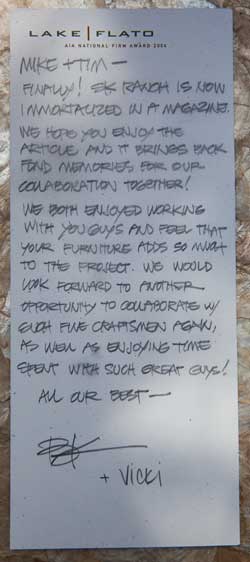 LAKE | FLATO
AIA NATIONAL FIRM AWARD 2004
MIKE + TIM —
FINALLY! SK RANCH IS NOW
IMMORTALIZED IN A MAGAZINE.
WE HOPE YOU ENJOY THE
ARTICLE AND IT BRINGS BACK
FOND MEMORIES FOR OUR
COLLABORATION TOGETHER!
WE BOTH ENJOYED WORKING
WITH YOU GUYS AND FEEL THAT
YOUR FURNITURE ADDS SO MUCH
TO THE PROJECT. WE WOULD
LOOK FORWARD TO ANOTHER
OPPORTUNITY TO COLLABORATE W/
SUCH FINE CRAFTSMEN AGAIN,
AS WELL AS ENJOYING TIME
SPENT WITH SUCH GREAT GUYS!
ALL OUR BEST —
+ VICKI